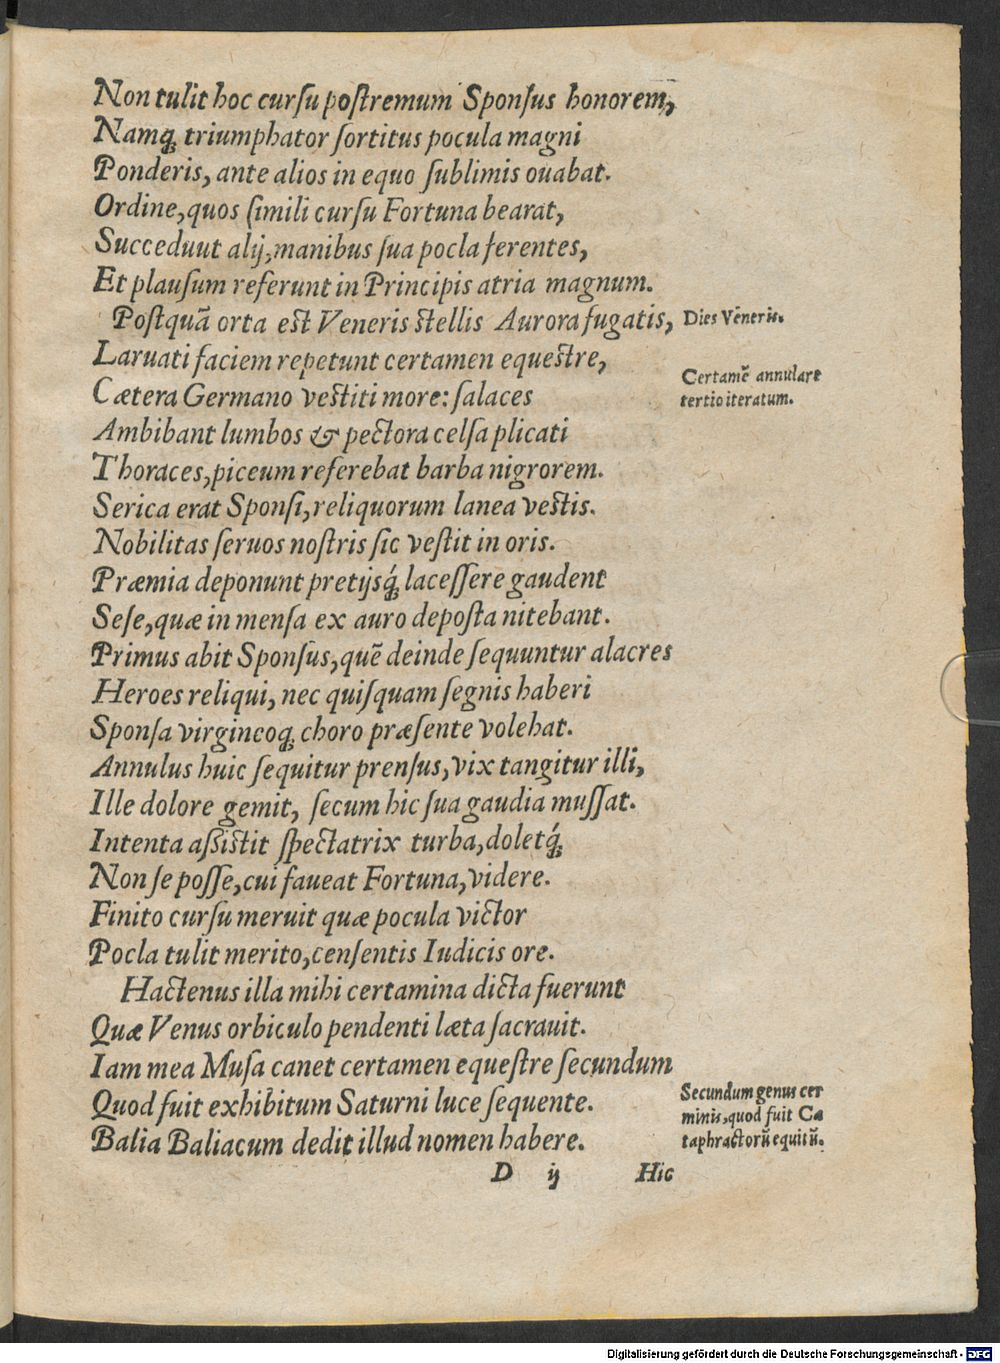 Non tulit hoc cursu postremum Sponsus honorem,
Namq́; triumphator sortitus pocula magni
Ponderis, ante alios in equo sublimis ouabat.
Ordine, quos simili cursu Fortuna bearat,
Succeduut alij, manibus sua pocla ferentes,
Et plausum referunt in Principis atria magnum.
Postquã orta est Veneris stellis Aurora fugatis,
Dies Veneris.
Laruati faciem repetunt certamen equestre,
Certamẽ annulare
Cætera Germano vestiti more: salaces
tertio iteratum.
Ambibant lumbos & pectora celsa plicati
Thoraces, piceum referebat barba nigrorem.
Serica erat Sponsi, reliquorum lanea vestis.
Nobilitas seruos nostris sic vestit in oris.
Præmia deponunt pretijsq́; lacessere gaudent
Sese, quæ in mensa ex auro deposta nitebant.
Primus abit Sponsus, quẽ deinde sequuntur alacres
Heroes reliqui, nec quisquam segnis haberi
Sponsa virgineoq; choro præsente volebat.
Annulus huic sequitur prensus, vix tangitur illi,
Ille dolore gemit, secum hic sua gaudia mussat.
Intenta assistit spectatrix turba, doletq́;
Non se posse, cui faueat Fortuna, videre.
Finito cursu meruit quæ pocula victor
Pocla tulit merito, censentis Iudicis ore.
Hactenus illa mihi certamina dicta fuerunt
Quæ Venus orbiculo pendenti læta sacrauit.
Iam mea Musa canet certamen equestre secundum
Quod fuit exhibitum Saturni luce sequente.
Secundum genus cer
minis, quod fuit Ca
Balia Baliacum dedit illud nomen habere.
taphractorũ equitũ.
D ij Hic
Digitalisierung gefördert durch die Deutsche Forschungsgemeinschaft - DFG